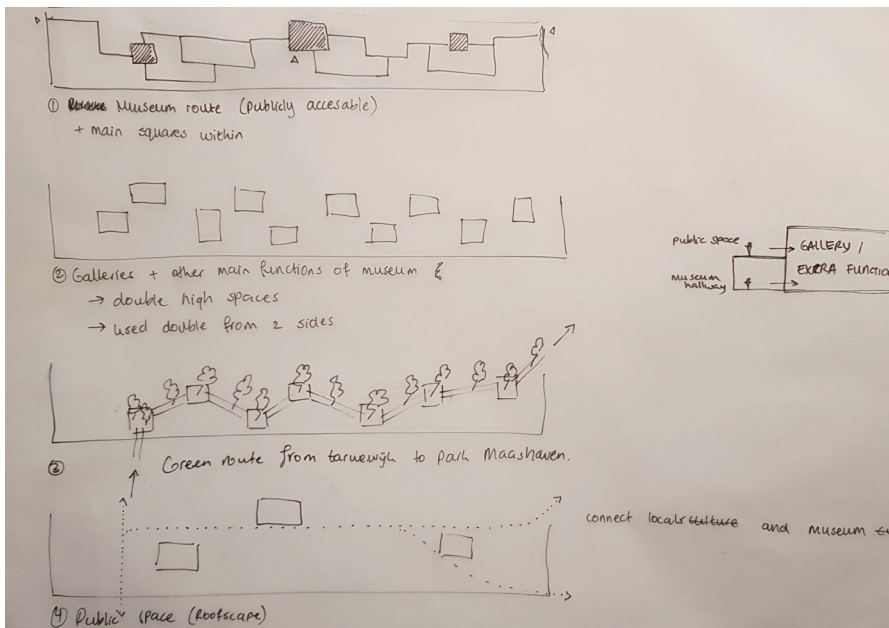 ① Museum route (publicly accesable)
+ main squares within
② Galleries + other main functions of museum
→ double high spaces
→ used double from 2 sides
public space
museum
hallway
→ GALLERY /
→ EXTRA FUNCTION
Green route from tarwewijk to park Maashaven.
connect locals culture and museum
④ Public space (Roofscape)